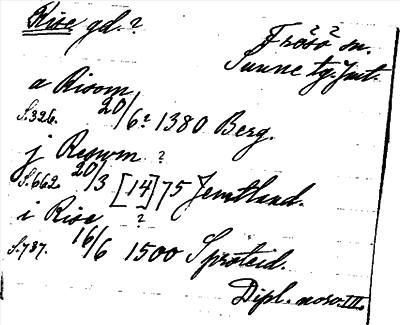 Rise gd. ?
Frösö sn.
Sunne tg. Jmt.
a Risom
S. 326. 20/6 ? 1380 Berg.
j Resom ?
S. 662. 20/3 [14]75 Jemtland.
i Rise ?
S. 787. 16/6 1500 Sproteid.
Dipl. norv. III.